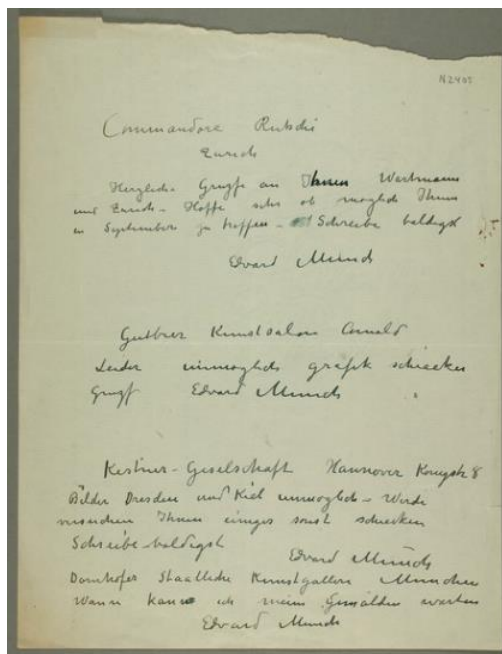 N2405
Commandore Rutschi
Zurich
Herzliche Grusse an Ihnen Wartmann
und Zurich - Hoffe sehr ob moglich Ihnen
in September zu treffen - Schreibe baldigst
Edvard Munch
Kunstsalon Arnold
Leider unmoglich grafik schicken
Gruss Edvard Munch
Kestner-Geselschaft Hannover Konigstr 8
Bilder Dresden und Kiel unmoglich - Werde
versuchen Ihnen einiges sonst schicken
Schreibe baldigst
Edvard Munch
Dornhofer Staatliche Kunstgalleri München
Wann kann ich meine Gemälden warten
Edvard Munch